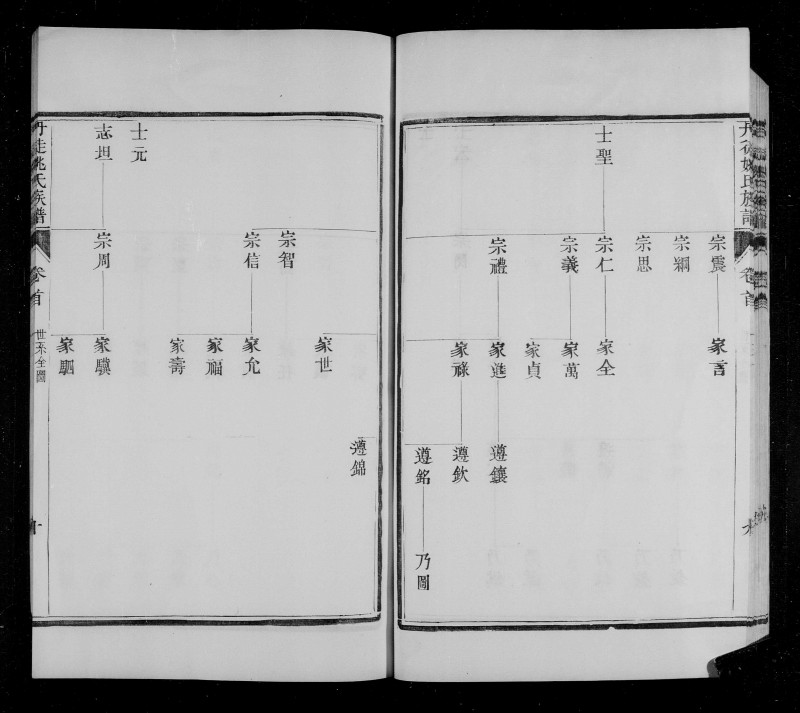 士聖
宗震
宗綱
宗思
宗仁
宗義
宗禮
家言
家全
家萬
家貞
家進
家祿
遵鑲
遵欽
遵銘
乃圖
士元
志坦
宗智
宗信
宗周
家世
家允
家福
家壽
家驥
家駟
遵錦
丹徒姚氏族譜
卷首
世系全圖
十